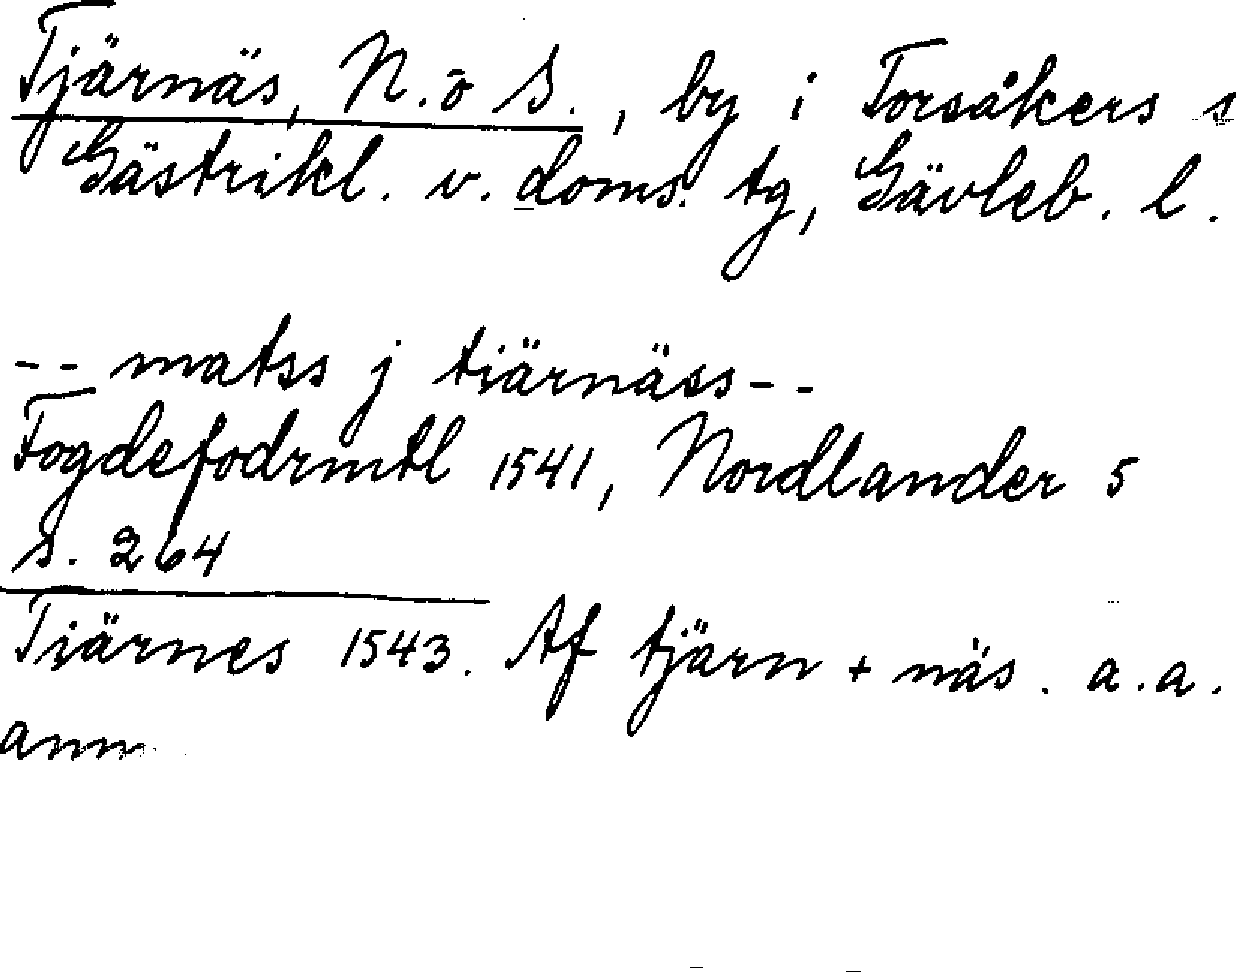 Tjärnäs, N. o S., by i Torsåkers s
Gästrikl. v. doms. tg, Gävleb. l.
-- matss j tiärnäss--
Fogdefodrmtl 1541, Nordlander 5
s. 264
Tiärnes 1543. Af tjärn + näs. a.a.
anm